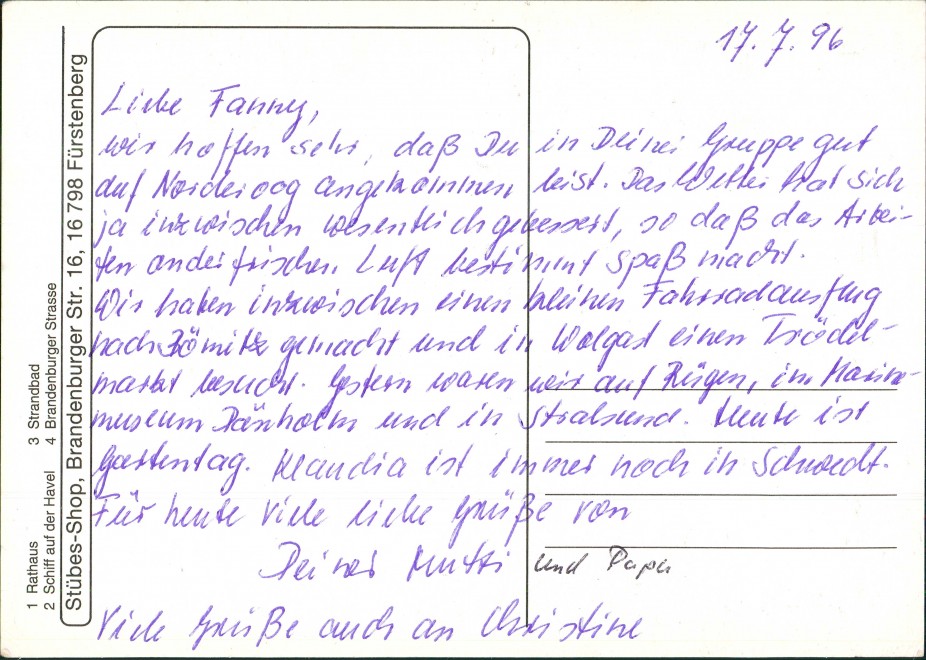 17.7.96
Liebe Fanny,
wir hoffen sehr, daß Du in Deiner Gruppe gut
auf Norderoog angekommen bist. Das Wetter hat sich
ja inzwischen wesentlich gebessert, so daß das Arbei-
ten an der frischen Luft bestimmt Spaß macht.
Wir haben inzwischen einen kleinen Fahrradausflug
nach gemacht und in Wolgast einen Trödel-
markt besucht. Gestern waren wir auf Rügen, im Marine-
museum Dänholm und in Stralsund. Heute ist
Gartentag. Klaudia ist immer noch in Schwedt.
Für heute viele liebe Grüße von
Deiner Mutti und Papa
Viele Grüße auch an Christine
1 Rathaus 3 Strandbad
2 Schiff auf der Havel 4 Brandenburger Strasse
Stübes-Shop, Brandenburger Str. 16, 16 798 Fürstenberg